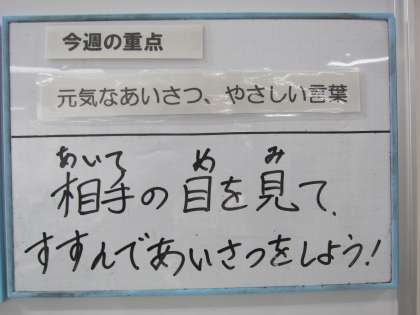 今週の重点
元気なあいさつ、やさしい言葉
あいて め み
相手の目を見て、
すすんであいさつをしよう!